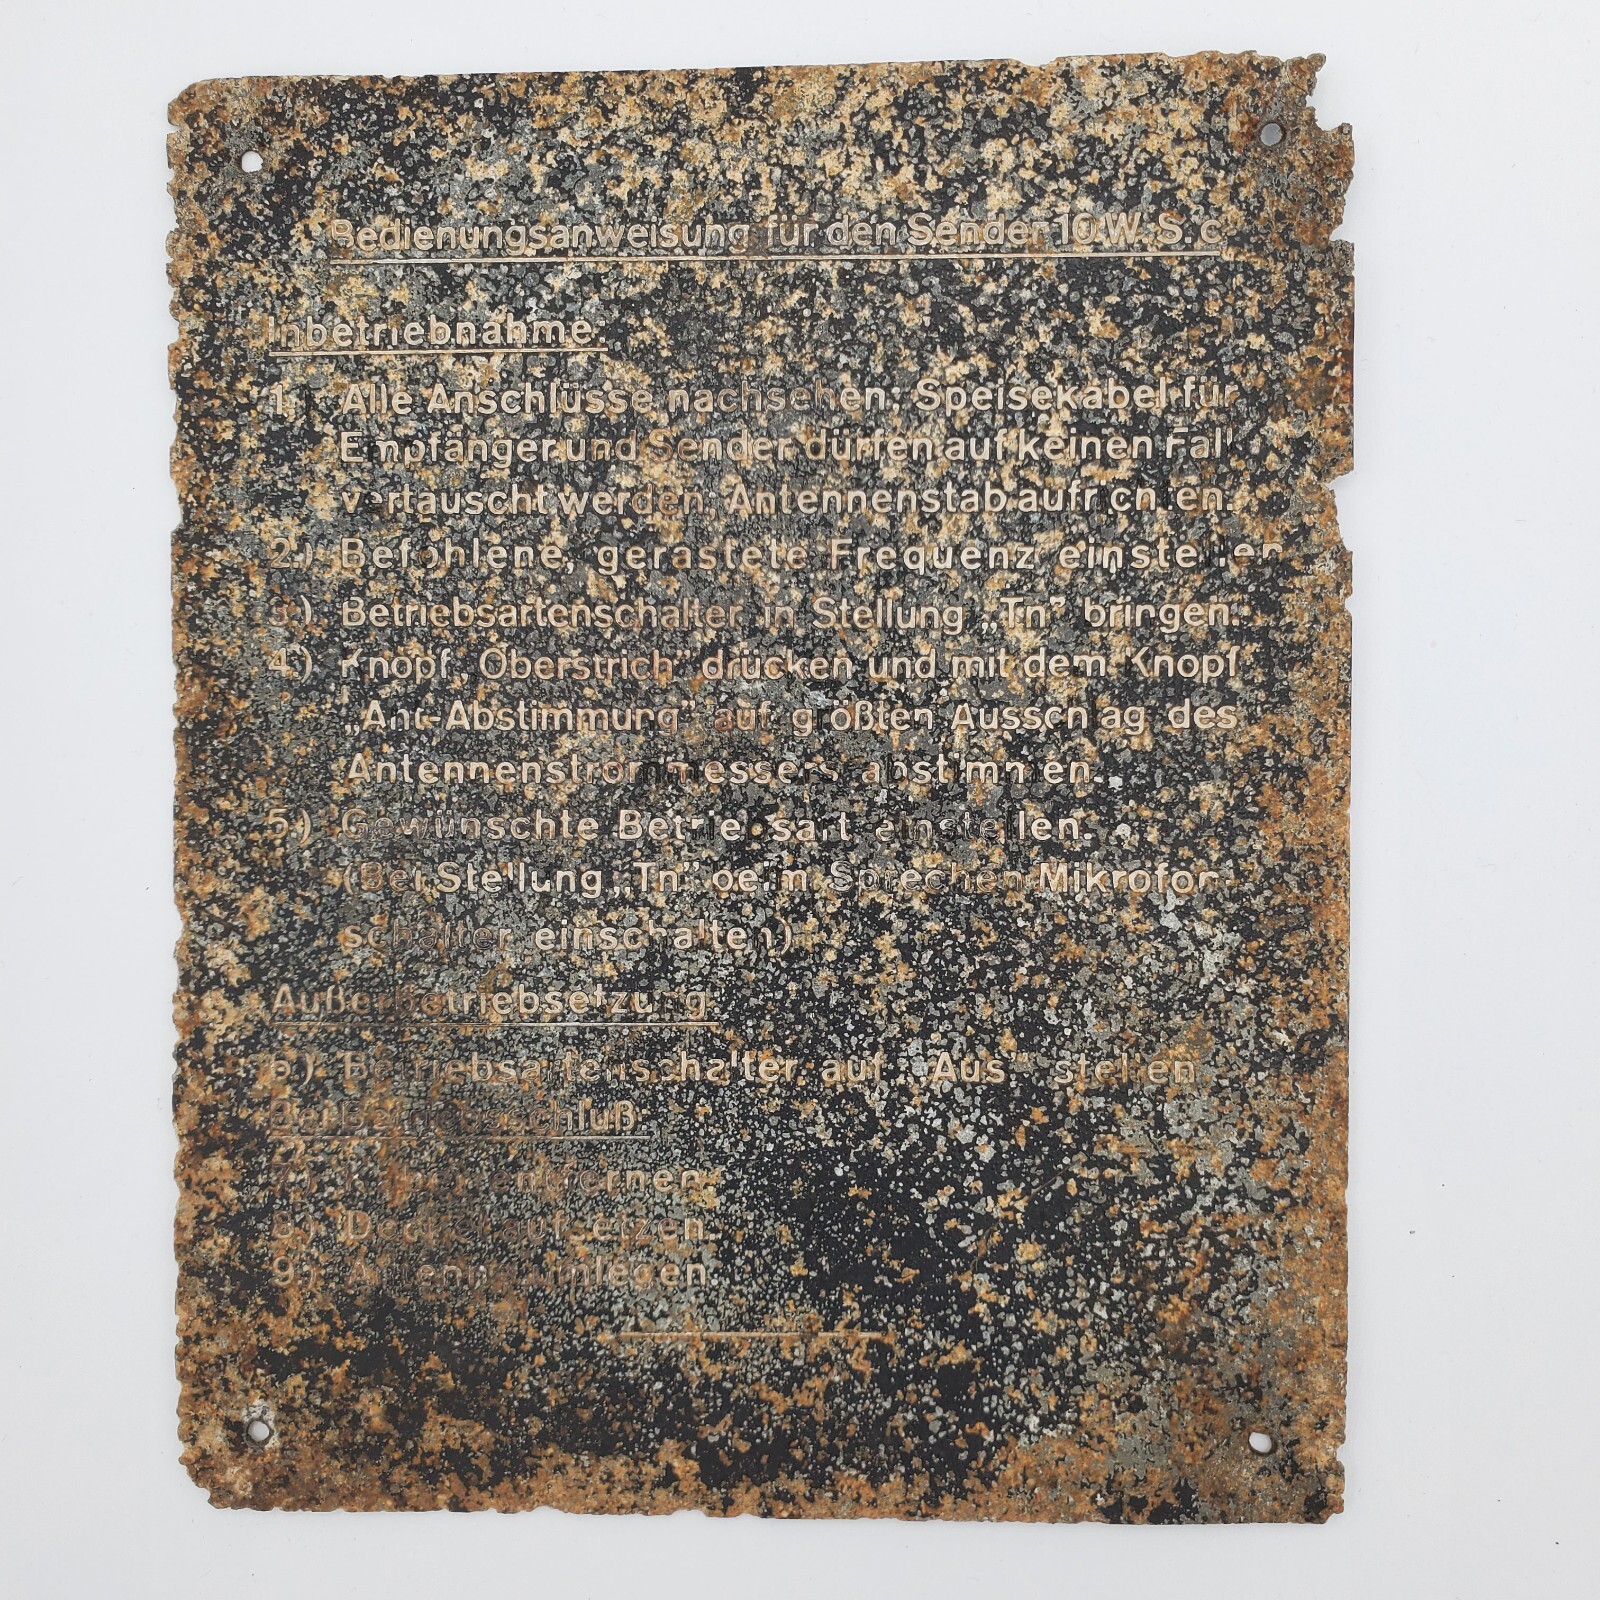 Bedienungsanweisung für den Sender 10 W. S. c.
Inbetriebnahme.
1.) Alle Anschlüsse nachsehen, Speisekabel für
Empfänger und Sender dürfen auf keinen Fall
vertauscht werden, Antennenstab aufrichten.
2.) Befohlene, gerastete Frequenz einstellen
3.) Betriebsartenschalter in Stellung „Tn” bringen.
4.) Knopf „Oberstrich” drücken und mit dem Knopf
„Ant-Abstimmung” auf größten Ausschlag des
Antennenstrommessers abstimmen.
5.) Gewünschte Betriebsart einstellen.
(Bei Stellung „Tn” beim Sprechen Mikrofon-
schalter einschalten)
Außerbetriebsetzung.
6.) Betriebsartenschalter auf „Aus” stellen
Bei Betriebsschluß
7.) entfernen.
8.) Deckel aufsetzen.
9.) Antenne umlegen.